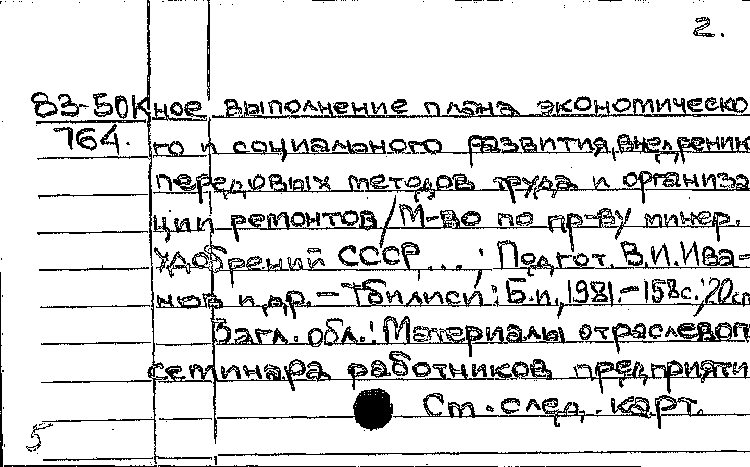 2.
83-50К ное выполнение плана экономическо
764. го и социального развития, внедрению
передовых методов труда и организа
ции ремонтов / М-во по пр-ву минер.
удобрений СССР ... ; Подгот. В.И. Ива-
нов и др. — Тбилиси : Б.и., 1981. — 158с.; 20см
Загл. обл.: Материалы отраслевого
семинара работников предприяти
См. след. карт.
5